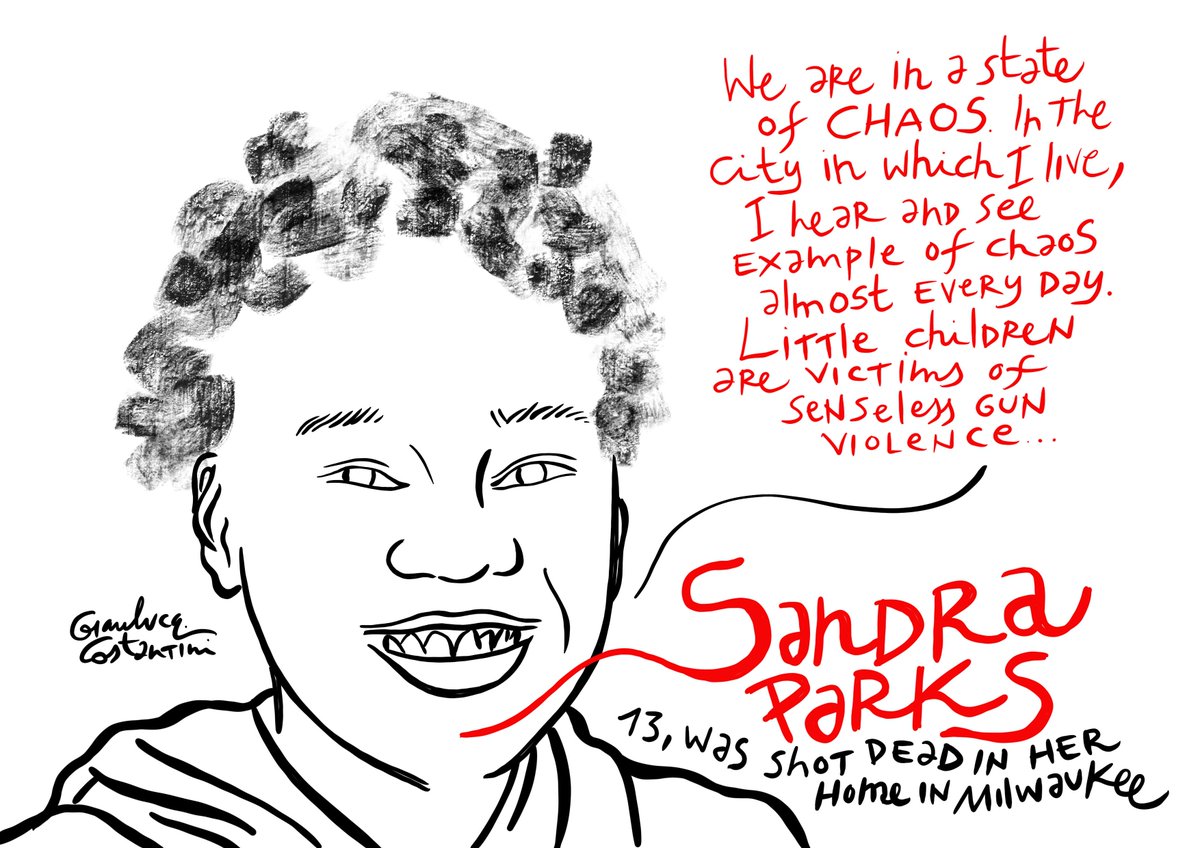 We are in a state
of CHAOS. In the
city in which I live,
I hear and see
example of chaos
almost every day.
Little children
are victims of
senseless gun
violence...
Sandra
Parks
13, was shot dead in her
home in Milwaukee
Gianluca
Costantini